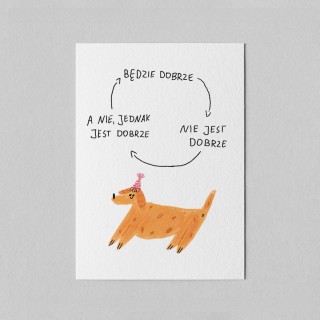 BĘDZIE DOBRZE
NIE JEST
DOBRZE
A NIE, JEDNAK
JEST DOBRZE